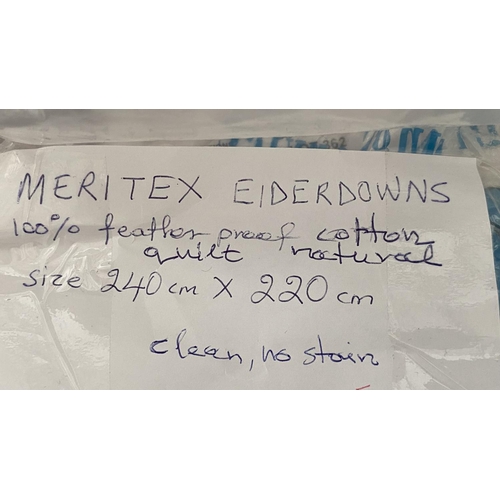 MERITEX EIDERDOWNS
100% feather proof cotton
quilt natural
size 240 cm X 220 cm
clean, no stain